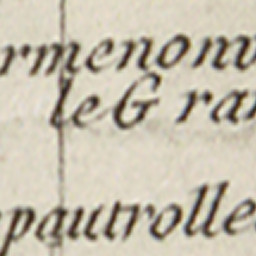 rmenonv
le G ran
pautrolle